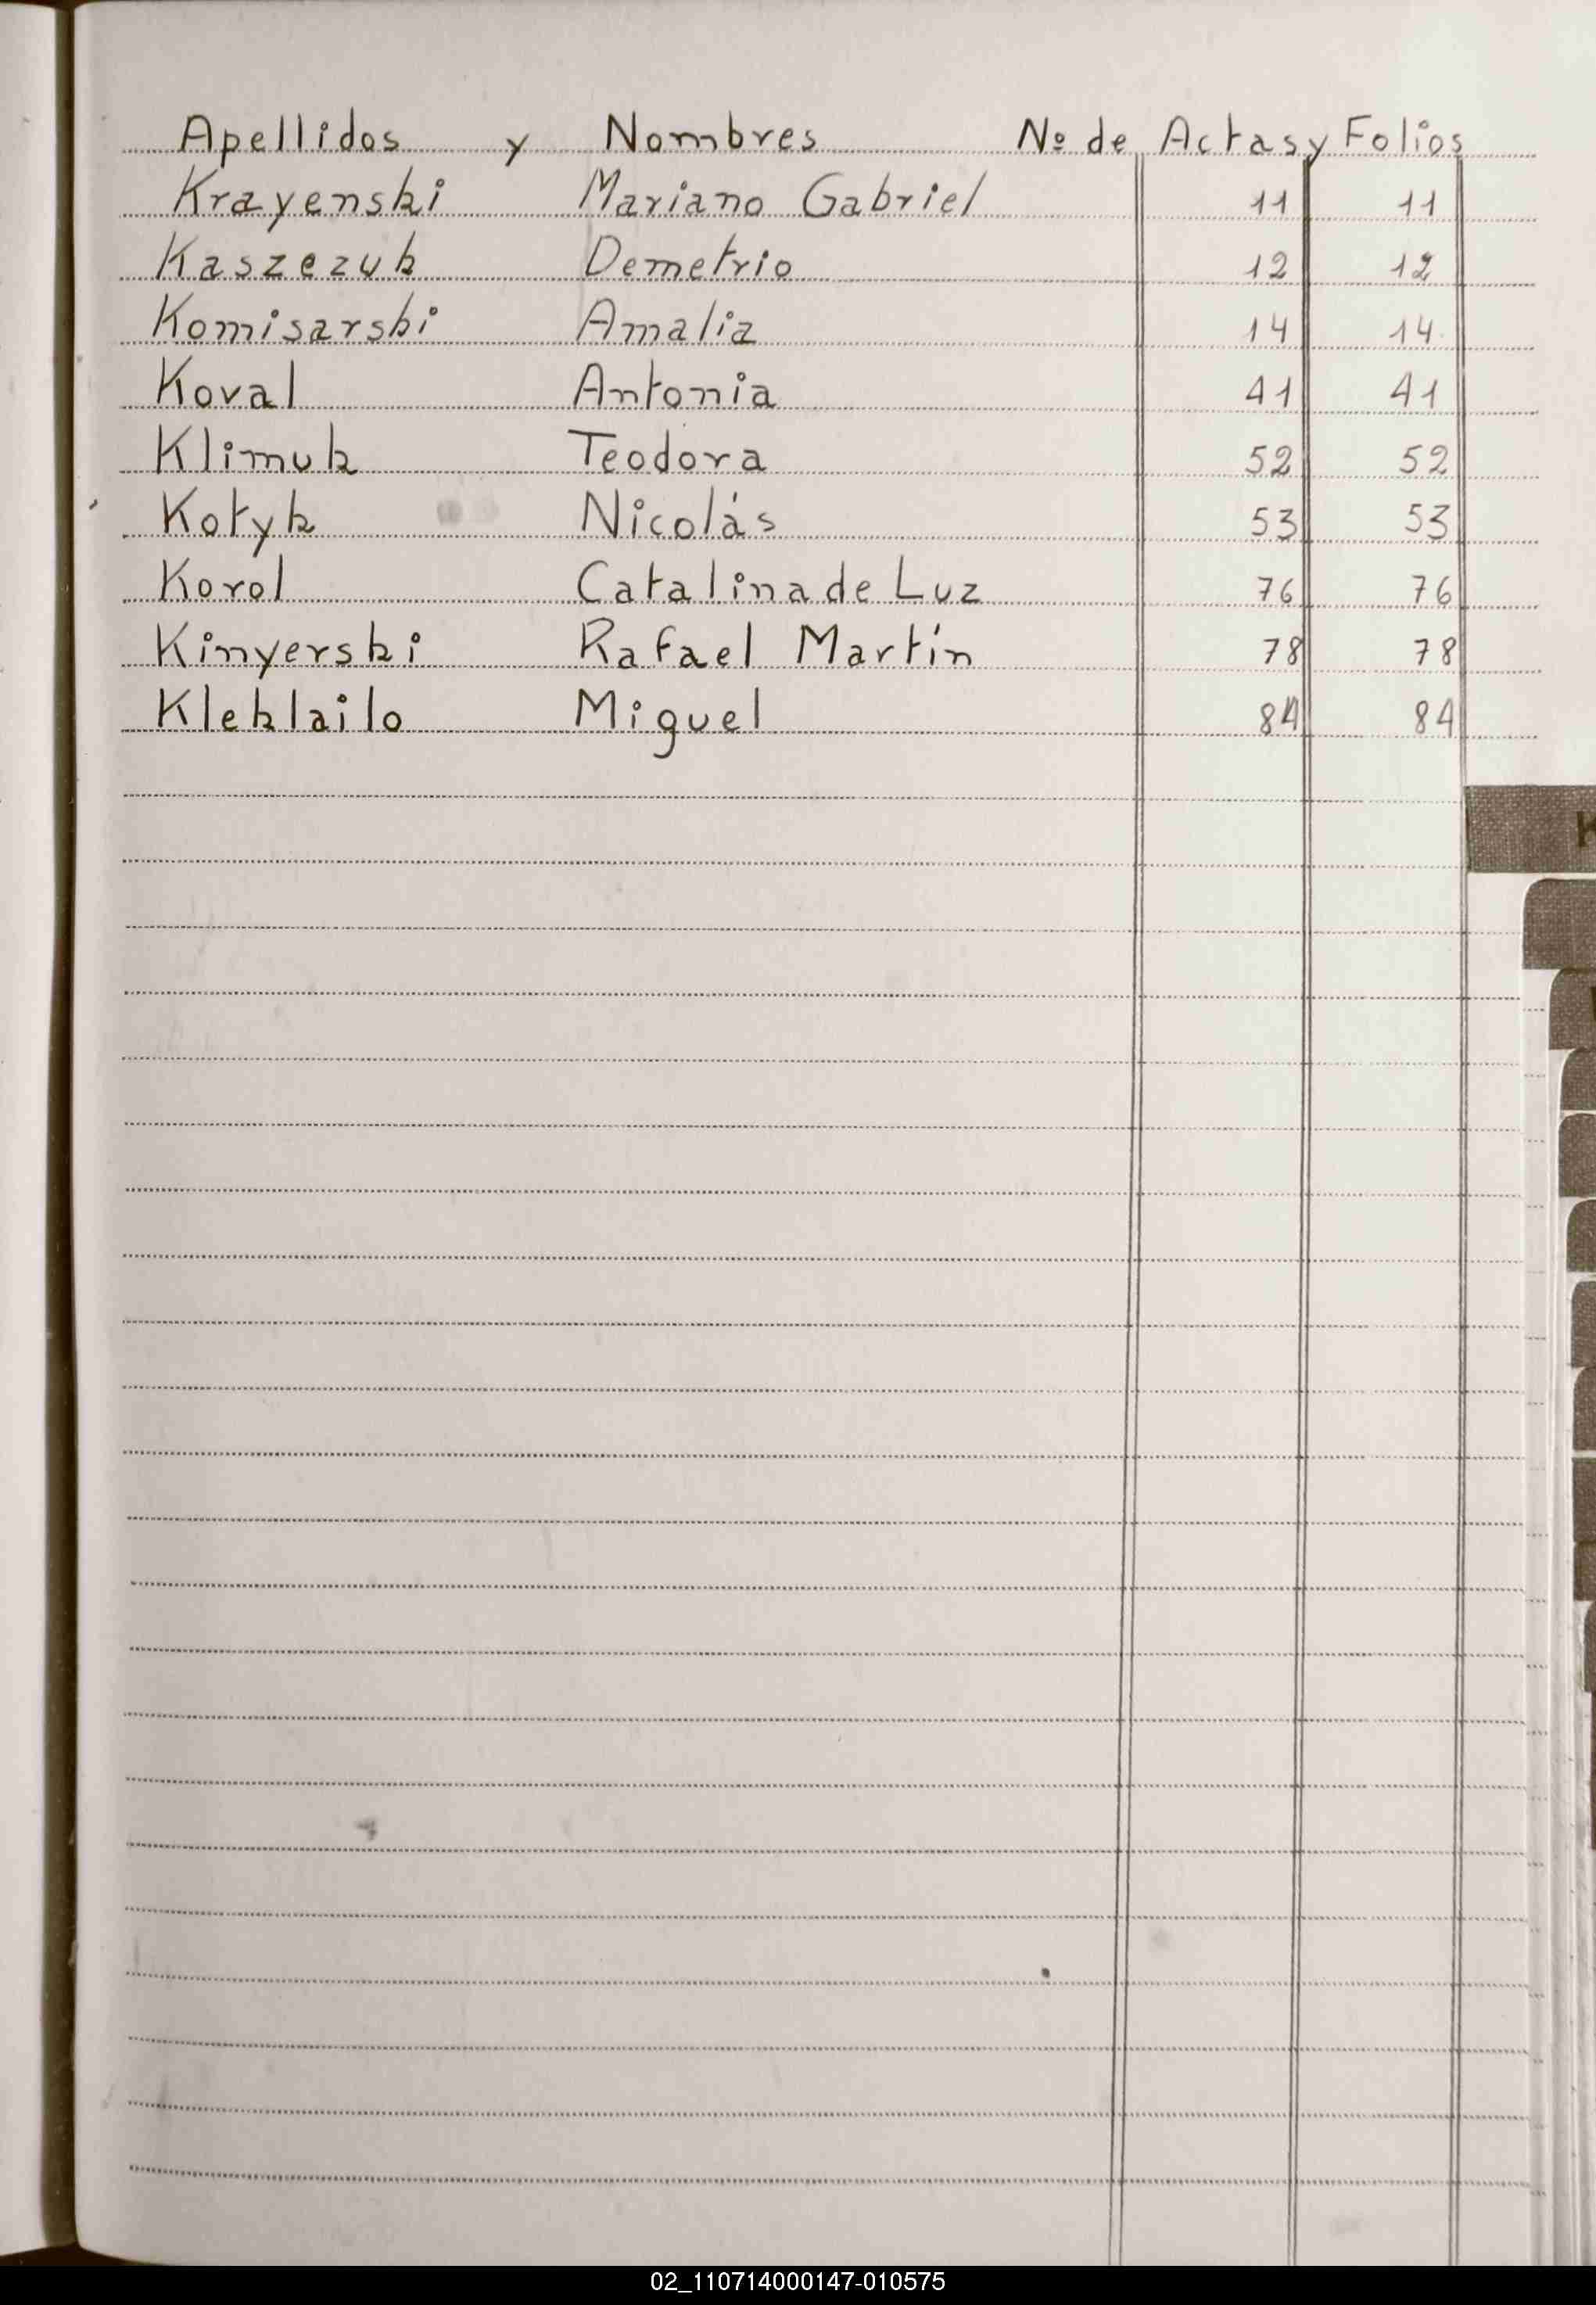 Apellidos y Nombres Nº de Actas y Folios
Krayenski Mariano Gabriel 11 11
Kaszezuk Demetrio 12 12
Komisarski Amalia 14 14
Koval Antonia 41 41
Klimuk Teodora 52 52
Kotyk Nicolás 53 53
Korol Catalina de Luz 76 76
Kinyerski Rafael Martín 78 78
Kleklailo Miguel 84 84
02_110714000147-010575